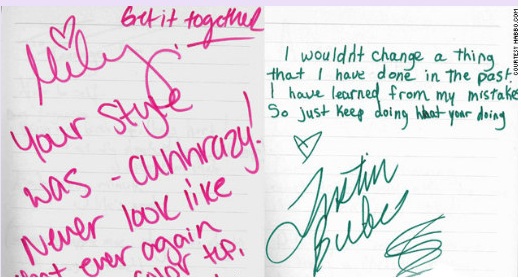 Get it together
Miley,
Your style
was - cuhhrazy!
Never look like
that ever again
color tip.
I wouldn't change a thing
that I have done in the past.
I have learned from my mistake
So just keep doing what your doing
Justin
Bieber
COURTESY HABBO.COM